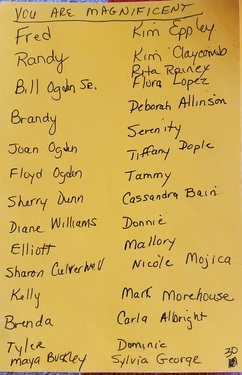 YOU ARE MAGNIFICENT
Fred
Randy
Bill Ogden Sr.
Brandy
Joan Ogden
Floyd Ogden
Sherry Dunn
Diane Williams
Elliott
Sharon Culverwell
Kelly
Brenda
Tyler
Maya Buckley
Kim Eppley
Kim Claycomb
Rita Rainey
Flora Lopez
Deborah Allinson
Serenity
Tiffany Dople
Tammy
Cassandra Bain
Donnie
Mallory
Nicole Mojica
Mark Morehouse
Carla Albright
Dominic
Sylvia George
30